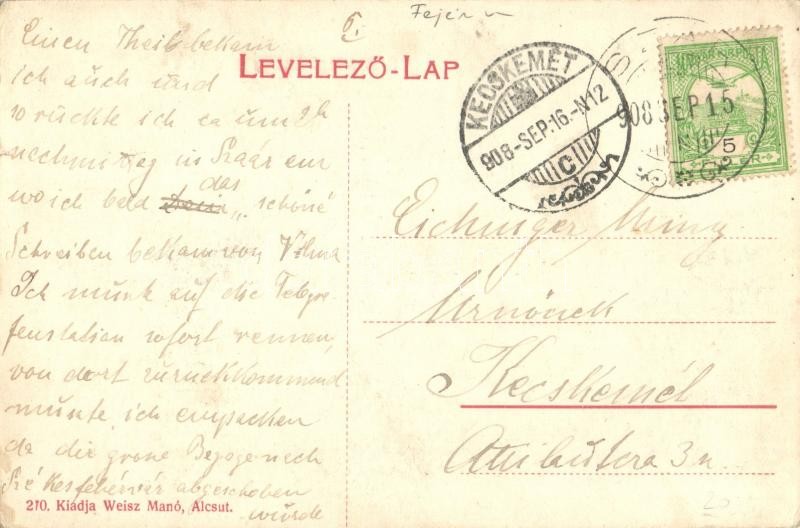 6.
Fejér
LEVELEZŐ-LAP
Einen Theil bekam
ich auch und
so rückte ich ca um 2h
nachmittag in Szaár ein
wo ich bald das schöne
Schreiben bekam von Vilma
Ich musste auf die Telegra-
fenstation sofort rennen,
von dort zurückkommend
musste ich einpacken
da die grosse Bagage nach
Székesfehérvár abgeschoben
wurde
KECSKEMÉT
908-SEP.16.-N12
C
908 SEP 15
5
Eichinger
Urnőnek
Kecskemét
Attila utcza 3
20
210. Kiadja Weisz Manó, Alcsut.